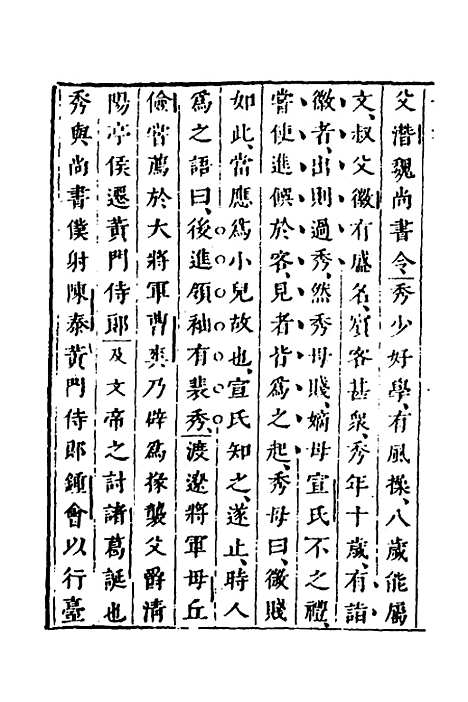 父潛魏尚書令秀少好學、有風操、八歲能屬
文、叔父徽有盛名、賔客甚衆、秀年十歲、有詣
徽者、出則過秀、然秀母賤、嫡母宣氏不之禮、
嘗使進饌於客、見者皆爲之起、秀母曰、微賤
如此、當應爲小兒故也、宣氏知之、遂止、時人
爲之語曰、後進領袖有裴秀、渡遼將軍毋丘
儉嘗薦於大將軍曹爽乃辟爲掾襲父爵清
陽亭侯遷黃門侍郎及文帝之討諸葛誕也
秀與尚書僕射陳泰黃門侍郎鍾會以行臺